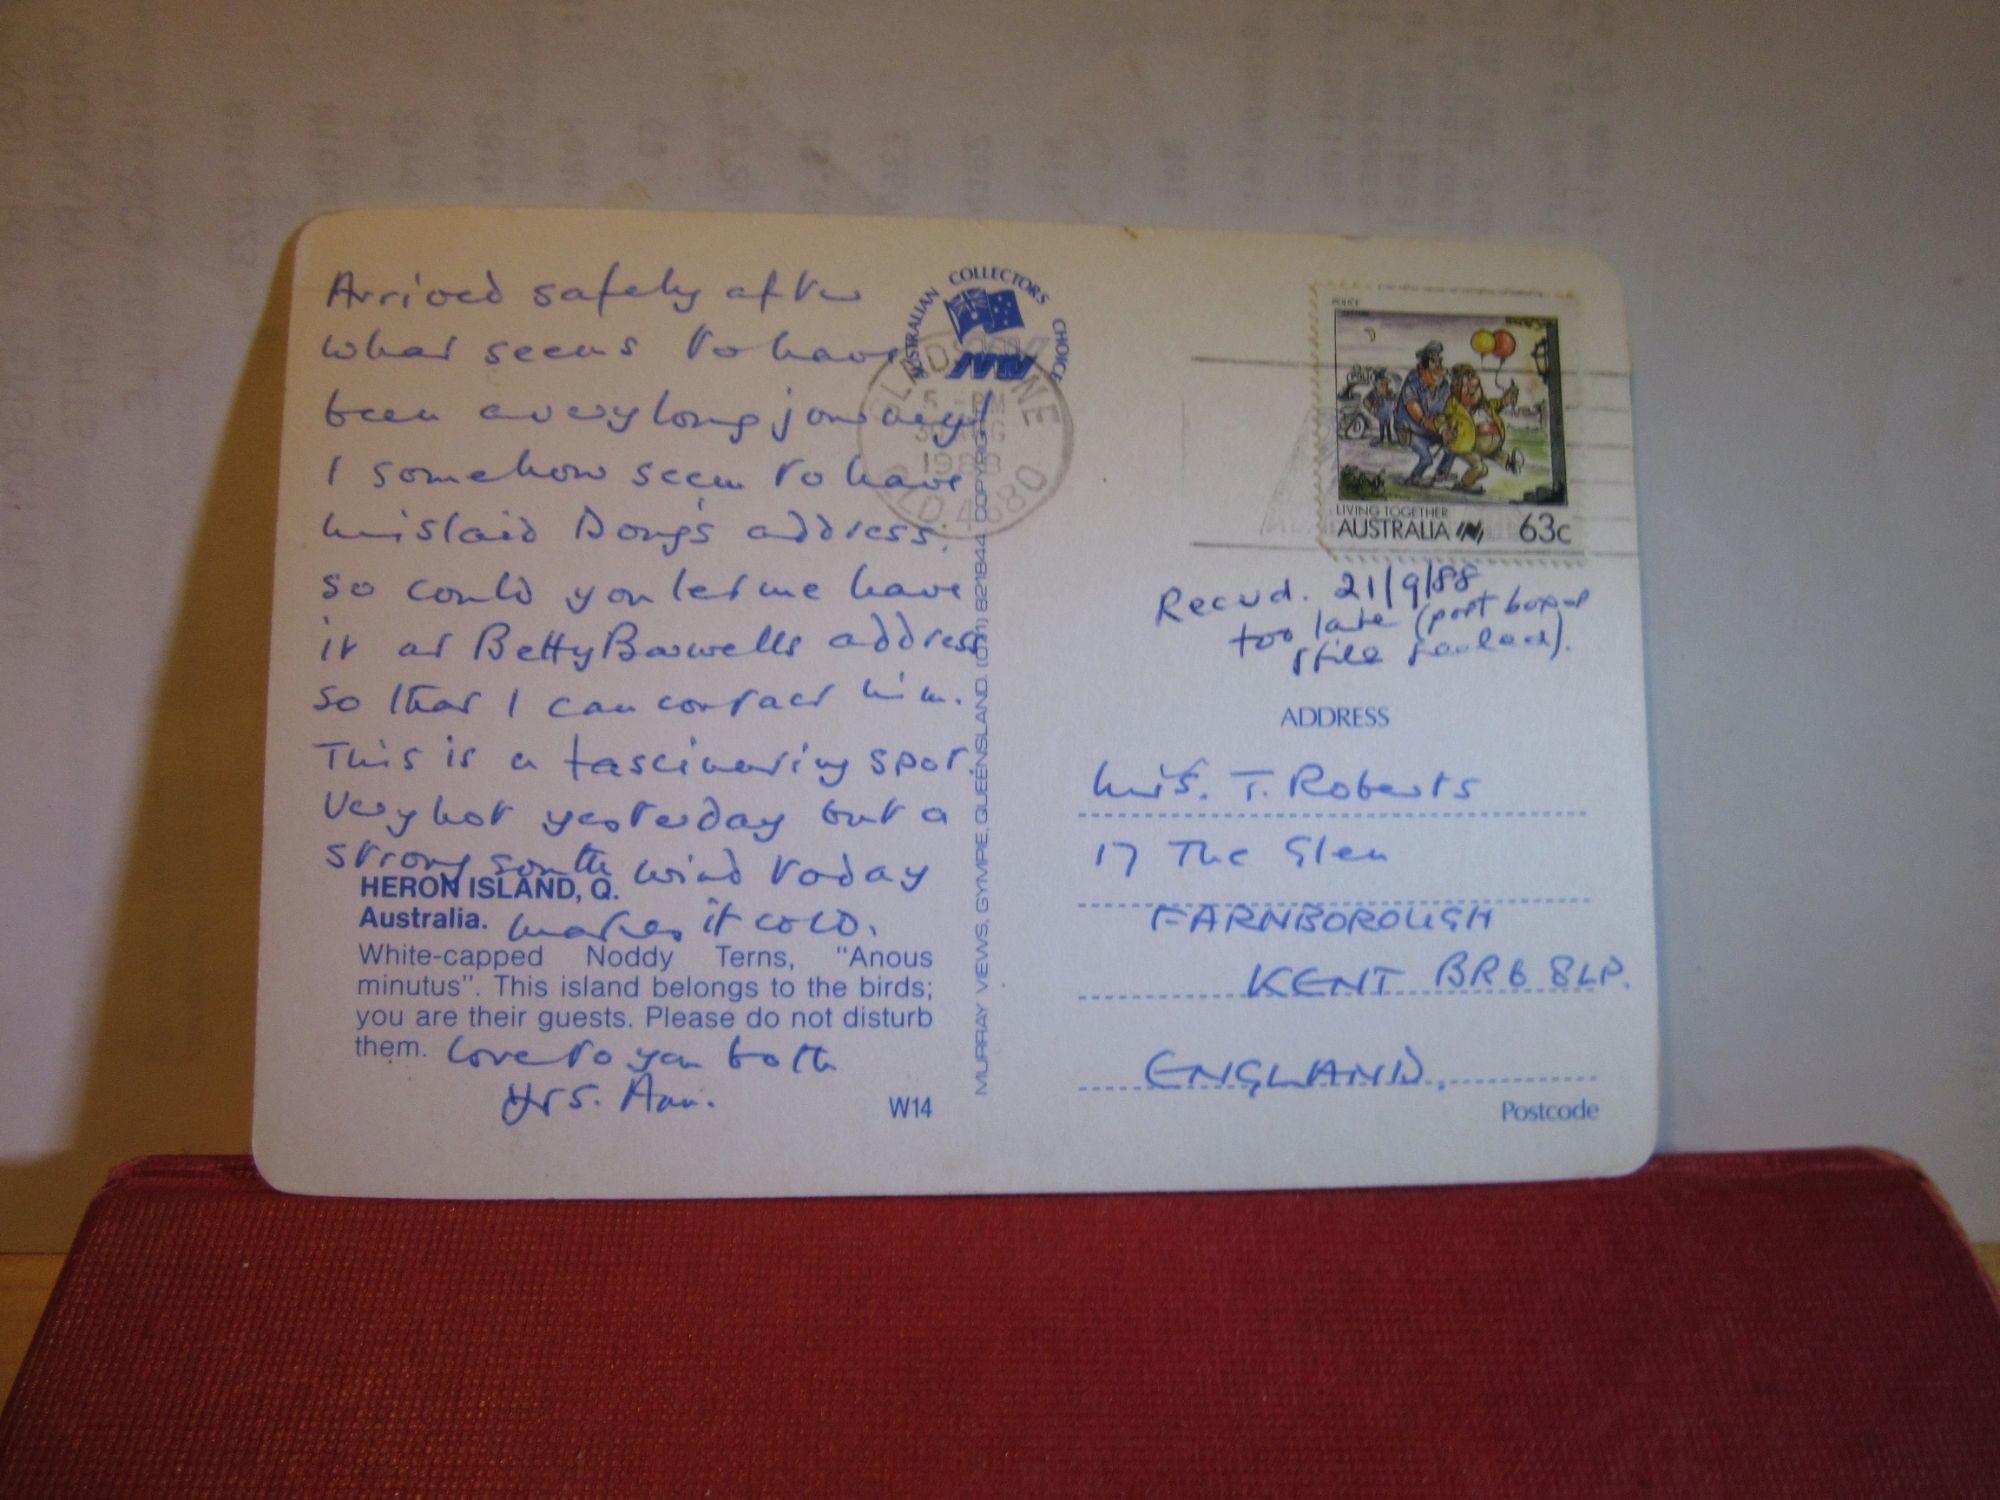 Arrived safely after
what seems to have
been a very long journey!
I somehow seem to have
mislaid Doug's address.
so could you let me have
it at Betty Barwells address
so that I can contact him.
This is a fascinating spot.
Very hot yesterday but a
strong south wind today
makes it cold.
HERON ISLAND, Q.
Australia.
White-capped Noddy Terns, "Anous
minutus". This island belongs to the birds;
you are their guests. Please do not disturb
them.
Love to you both
Yrs. Ann.
W14
AUSTRALIAN COLLECTORS CHOICE
GLADSTONE
5 - PM
30 AUG
1988
QLD 4680
MURRAY VIEWS, GYMPIE, QUEENSLAND. (071) 821844. COPYRIGHT
POLICE
LIVING TOGETHER
AUSTRALIA 63c
Recvd. 21/9/88
too late (post box
still
ADDRESS
Mrs. T. Roberts
17 The Glen
FARNBOROUGH
KENT BR6 8LP.
ENGLAND.
Postcode